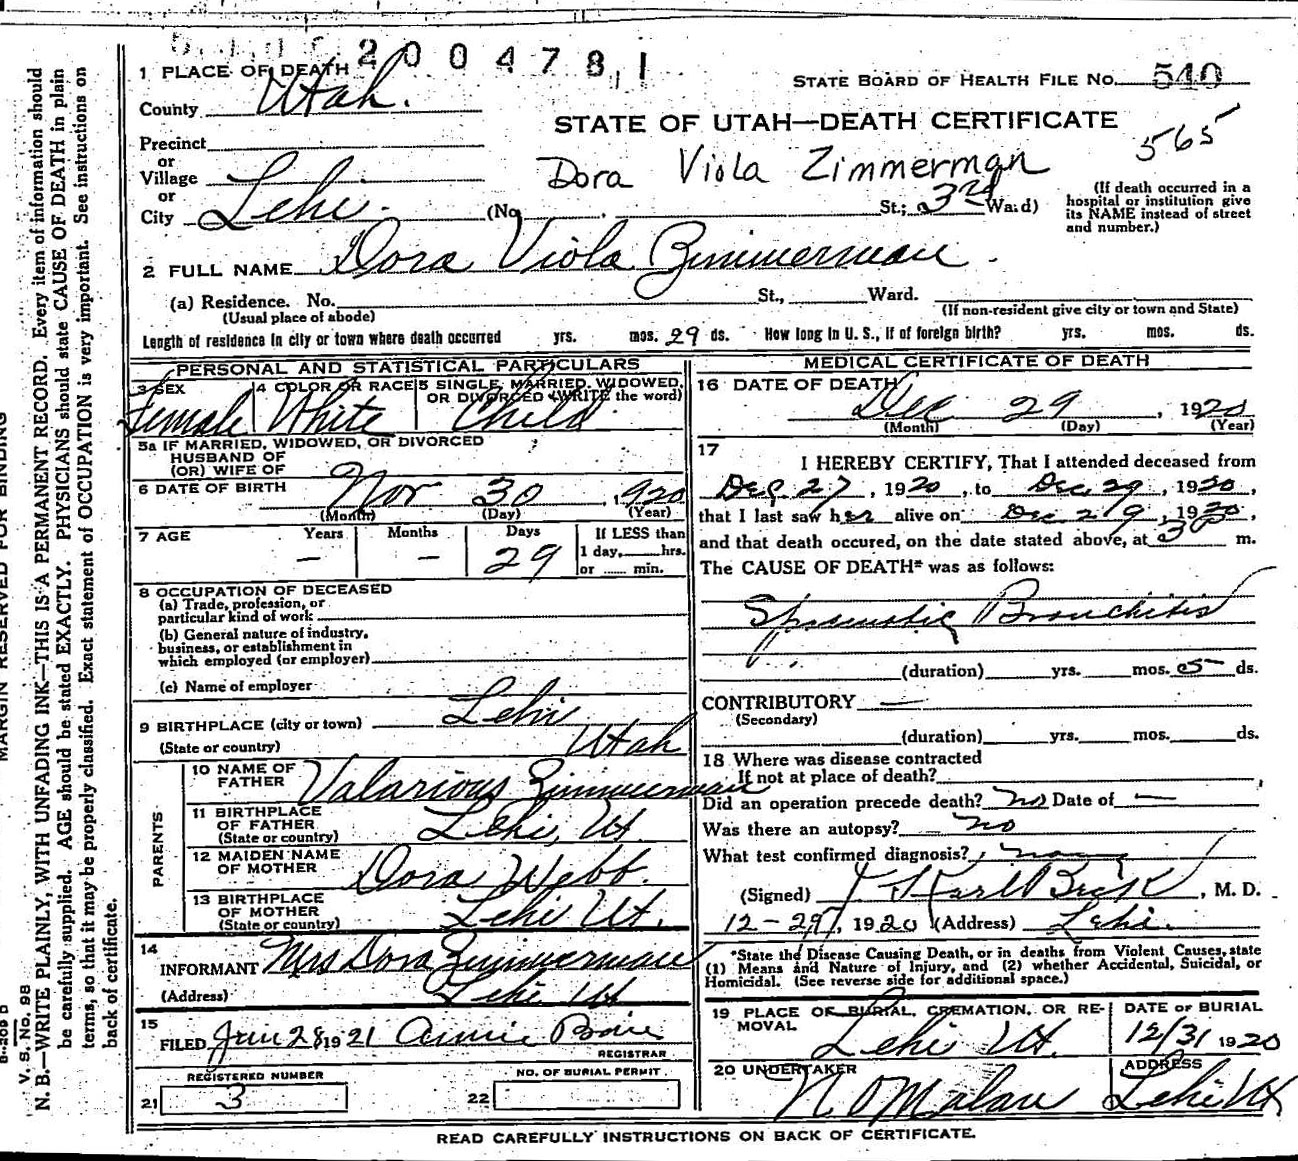 2004781
1 PLACE OF DEATH
STATE BOARD OF HEALTH FILE NO. 540
County Utah.
STATE OF UTAH—DEATH CERTIFICATE
565
Precinct
or
Village
or
City Lehi.
Dora Viola Zimmerman
(No. St.; 3rd Ward)
(If death occurred in a
hospital or institution give
its NAME instead of street
and number.)
2 FULL NAME Dora Viola Zimmerman.
(a) Residence. No. St., Ward.
(Usual place of abode)
(If non-resident give city or town and State)
Length of residence in city or town where death occurred yrs. mos. 29 ds. How long in U. S., if of foreign birth? yrs. mos. ds.
PERSONAL AND STATISTICAL PARTICULARS
3 SEX
Female
4 COLOR OR RACE
White
5 SINGLE, MARRIED, WIDOWED,
OR DIVORCED (WRITE the word)
Child
5a IF MARRIED, WIDOWED, OR DIVORCED
HUSBAND OF
(OR) WIFE OF
6 DATE OF BIRTH Nov 30, 1920
(Month) (Day) (Year)
7 AGE Years Months Days If LESS than
— — 29 1 day, hrs.
or min.
8 OCCUPATION OF DECEASED
(a) Trade, profession, or
particular kind of work
(b) General nature of industry,
business, or establishment in
which employed (or employer)
(c) Name of employer
9 BIRTHPLACE (city or town) Lehi
(State or country) Utah
PARENTS
10 NAME OF
FATHER Valarious Zimmerman
11 BIRTHPLACE
OF FATHER
(State or country) Lehi, Ut
12 MAIDEN NAME
OF MOTHER Dora Webb.
13 BIRTHPLACE
OF MOTHER
(State or country) Lehi Ut.
14
INFORMANT Mrs Dora Zimmerman
(Address) Lehi Ut
15
FILED Jan 28 1921 Annie
REGISTRAR
REGISTERED NUMBER
21 3
NO. OF BURIAL PERMIT
22
MEDICAL CERTIFICATE OF DEATH
16 DATE OF DEATH
Dec 29, 1920
(Month) (Day) (Year)
17
I HEREBY CERTIFY, That I attended deceased from
Dec 27, 1920, to Dec 29, 1920,
that I last saw her alive on Dec 29, 1920,
and that death occured, on the date stated above, at 3 m.
The CAUSE OF DEATH* was as follows:
Spasmodic Bronchitis
(duration) yrs. mos. 5 ds.
CONTRIBUTORY —
(Secondary)
(duration) yrs. mos. ds.
18 Where was disease contracted
If not at place of death?
Did an operation precede death? no Date of —
Was there an autopsy? no
What test confirmed diagnosis?
(Signed) Karl , M. D.
12-29, 1920 (Address) Lehi.
*State the Disease Causing Death, or in deaths from Violent Causes, state
(1) Means and Nature of Injury, and (2) whether Accidental, Suicidal, or
Homicidal. (See reverse side for additional space.)
19 PLACE OF BURIAL, CREMATION, OR RE-
MOVAL
Lehi Ut.
DATE OF BURIAL
12/31 1920
20 UNDERTAKER
N O Malan
ADDRESS
Lehi Ut
READ CAREFULLY INSTRUCTIONS ON BACK OF CERTIFICATE.
MARGIN RESERVED FOR BINDING
V. S. No. 98
N. B.—WRITE PLAINLY, WITH UNFADING INK—THIS IS A PERMANENT RECORD. Every item of information should
be carefully supplied. AGE should be stated EXACTLY. PHYSICIANS should state CAUSE OF DEATH in plain
terms, so that it may be properly classified. Exact statement of OCCUPATION is very important. See instructions on
back of certificate.